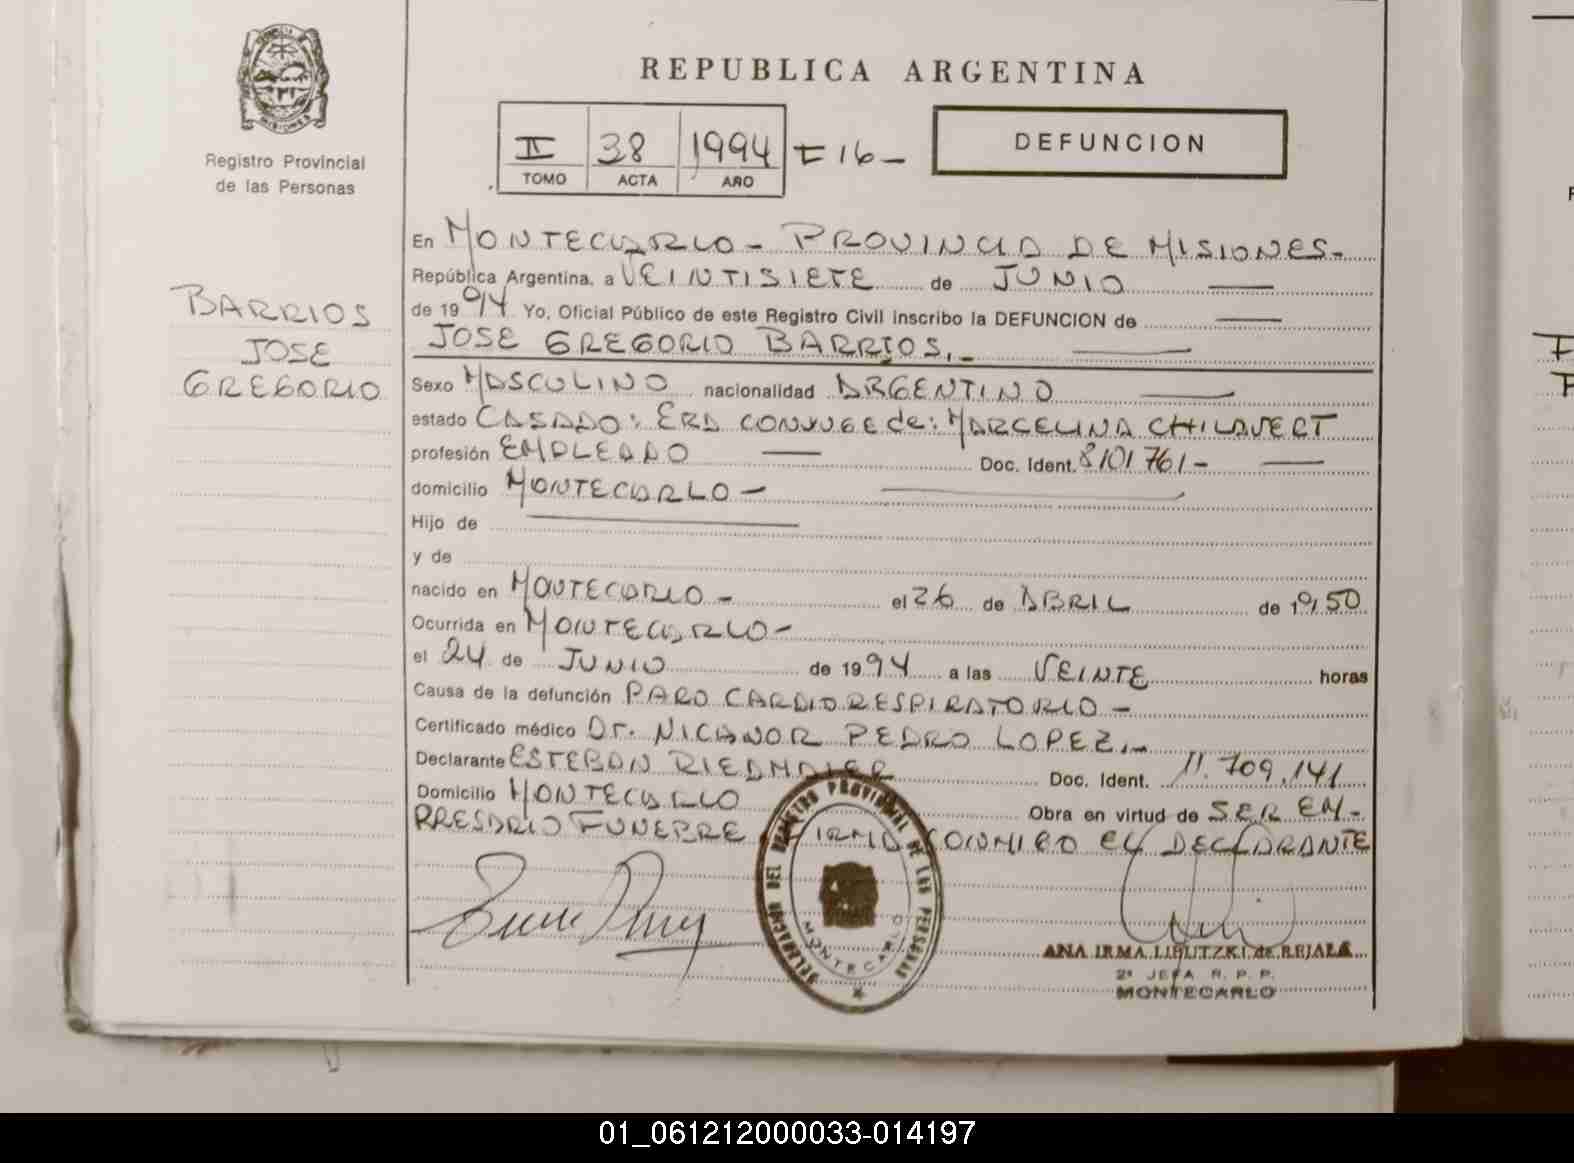 MISIONES
Registro Provincial
de las Personas
BARRIOS
JOSE
GREGORIO
REPUBLICA ARGENTINA
II 38 1994 F 16-
TOMO ACTA AÑO
DEFUNCION
En MONTECARLO - PROVINCIA DE MISIONES-
República Argentina, a VEINTISIETE de JUNIO
de 1994 Yo, Oficial Público de este Registro Civil inscribo la DEFUNCION de
JOSE GREGORIO BARRIOS.-
Sexo MASCULINO nacionalidad ARGENTINO
estado CASADO: ERA CONYUGE de: MARCELINA CHILAVERT
profesión EMPLEADO Doc. Ident. 8101761-
domicilio MONTECARLO-
Hijo de
y de
nacido en MONTECARLO- el 26 de ABRIL de 1950
Ocurrida en MONTECARLO-
el 24 de JUNIO de 1994 a las VEINTE horas
Causa de la defunción PARO CARDIORESPIRATORIO-
Certificado médico Dr. NICANOR PEDRO LOPEZ.-
Declarante ESTEBAN RIEDMAIER Doc. Ident. 11.709.141
Domicilio MONTECARLO Obra en virtud de SER EM-
PRESARIO FUNEBRE FIRMA CONMIGO EL DECLARANTE
DELEGACION DEL REGISTRO PROVINCIAL DE LAS PERSONAS
MONTECARLO
ANA IRMA LIBUTZKI de REJALA
2ª JEFA R. P. P.
MONTECARLO
01_061212000033-014197